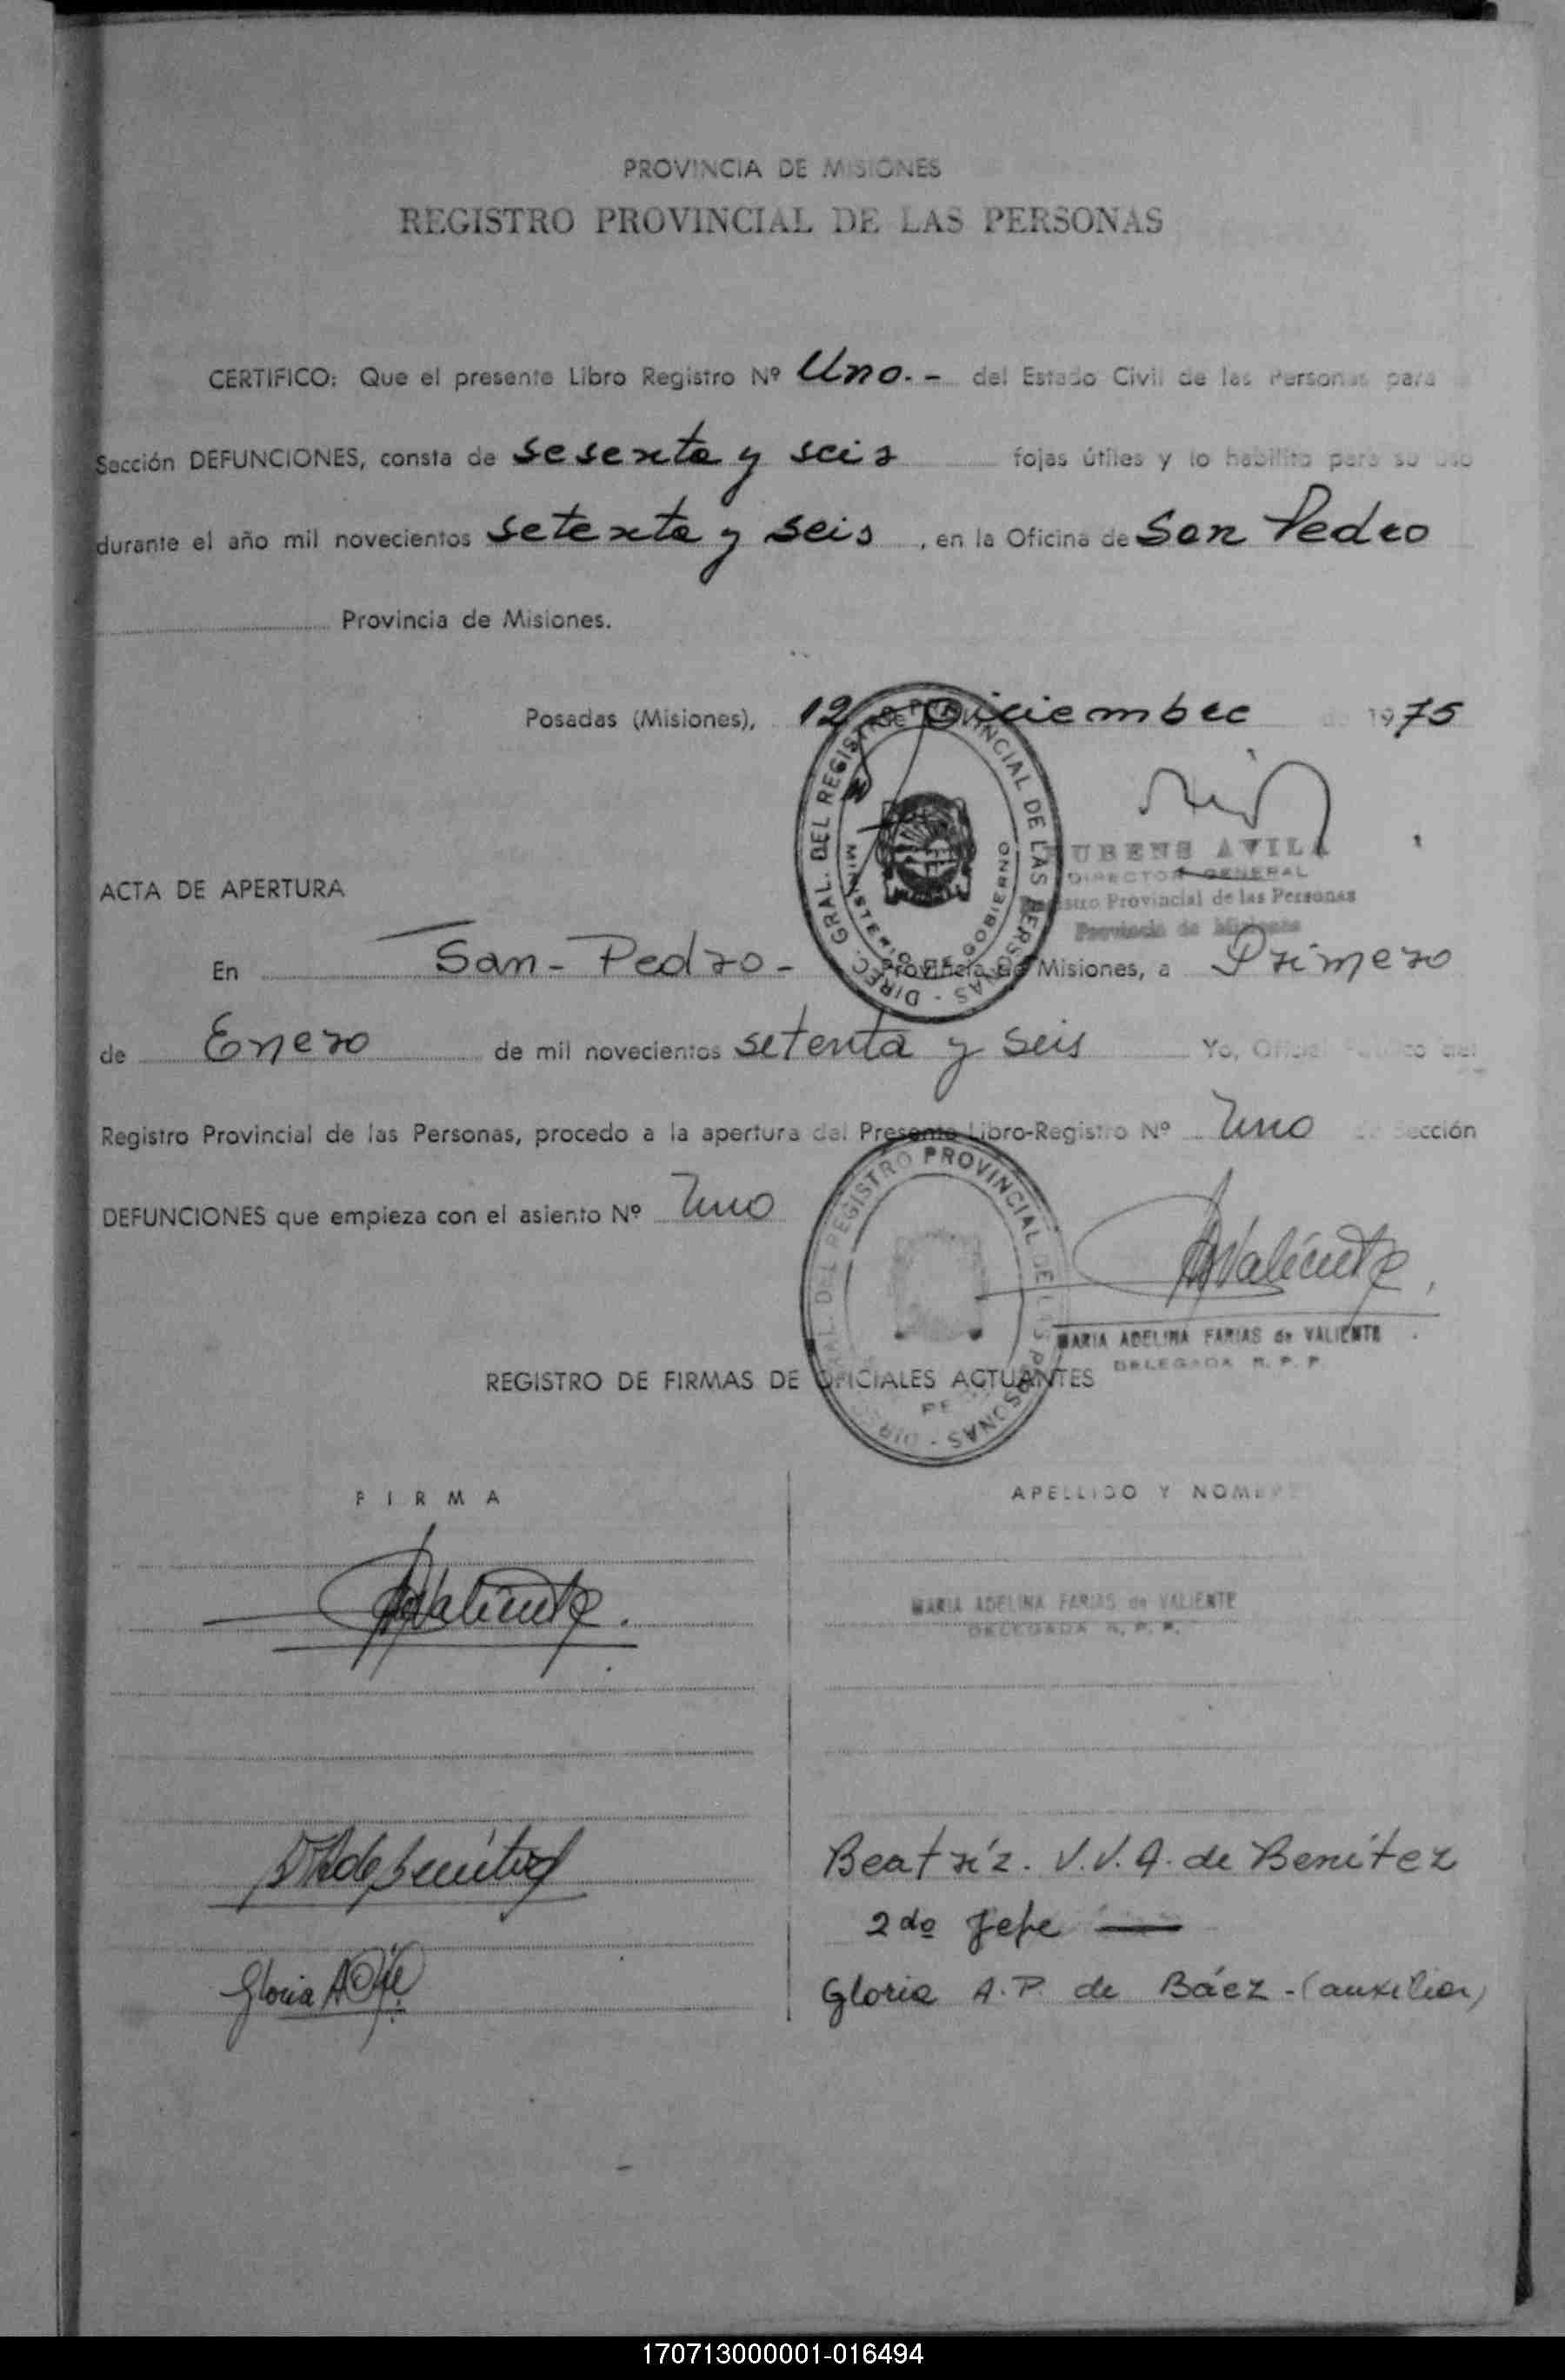 PROVINCIA DE MISIONES
REGISTRO PROVINCIAL DE LAS PERSONAS
CERTIFICO: Que el presente Libro Registro Nº Uno.- del Estado Civil de las Personas para la
Sección DEFUNCIONES, consta de sesenta y seis fojas útiles y lo habilito para su uso
durante el año mil novecientos setenta y seis, en la Oficina de San Pedro
Provincia de Misiones.
Posadas (Misiones), 12 de Diciembre de 1975
DIREC. GRAL. DEL REGISTRO PROVINCIAL DE LAS PERSONAS -
MINISTERIO DE GOBIERNO
RUBENS AVILA
DIRECTOR GENERAL
Provincial de las Personas
Provincia de Misiones
ACTA DE APERTURA
En San-Pedro- Provincia de Misiones, a Primero
de Enero de mil novecientos setenta y seis Yo, Oficial Público del
Registro Provincial de las Personas, procedo a la apertura del Presente Libro-Registro Nº Uno de Sección
DEFUNCIONES que empieza con el asiento Nº Uno
DIREC. GRAL. DEL REGISTRO PROVINCIAL DE LAS PERSONAS -
AValiente
MARIA ADELINA FARIAS de VALIENTE
DELEGADA R. P. P.
REGISTRO DE FIRMAS DE OFICIALES ACTUANTES
FIRMA APELLIDO Y NOMBRE
AValiente. MARIA ADELINA FARIAS de VALIENTE
DELEGADA R. P. P.
Beatríz. V.V.A. de Benítez
2do Jefe —
Gloria Gloria A.P. de Báez-(auxiliar)
170713000001-016494